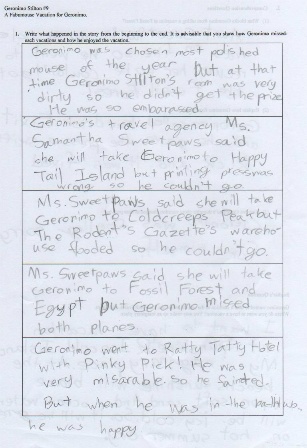 Geronimo Stilton #9
A Fabumouse Vacation for Geronimo.
1. Write what happened in the story from the beginning to the end. It is advisable that you show how Geronimo missed
each vacations and how he enjoyed the vacation.
Geronimo was chosen most polished
mouse of the year but at that
time Geronimo Stilton's room was very
dirty so he didn't get the prize
He was so embarased.
Geronimo's travel agency Ms.
Samantha Sweetpaws said
she will take Geronimo to Happy
Tail Island but printing press was
wrong so he couldn't go
Ms. Sweetpaws said she will take
Geronimo to Coldcreeps Peak but
The Rodent's Gazette's wareho
use flooded so he couldn't go.
Ms. Sweetpaws said she will take
Geronimo to Fossil Forest and
Egypt but Geronimo mised
both planes
Geronimo went to Ratty Tatty Hotel
with Pinky Pick! He was
very misarable. so he fainted.
But when he was in the bathtub.
he was happy